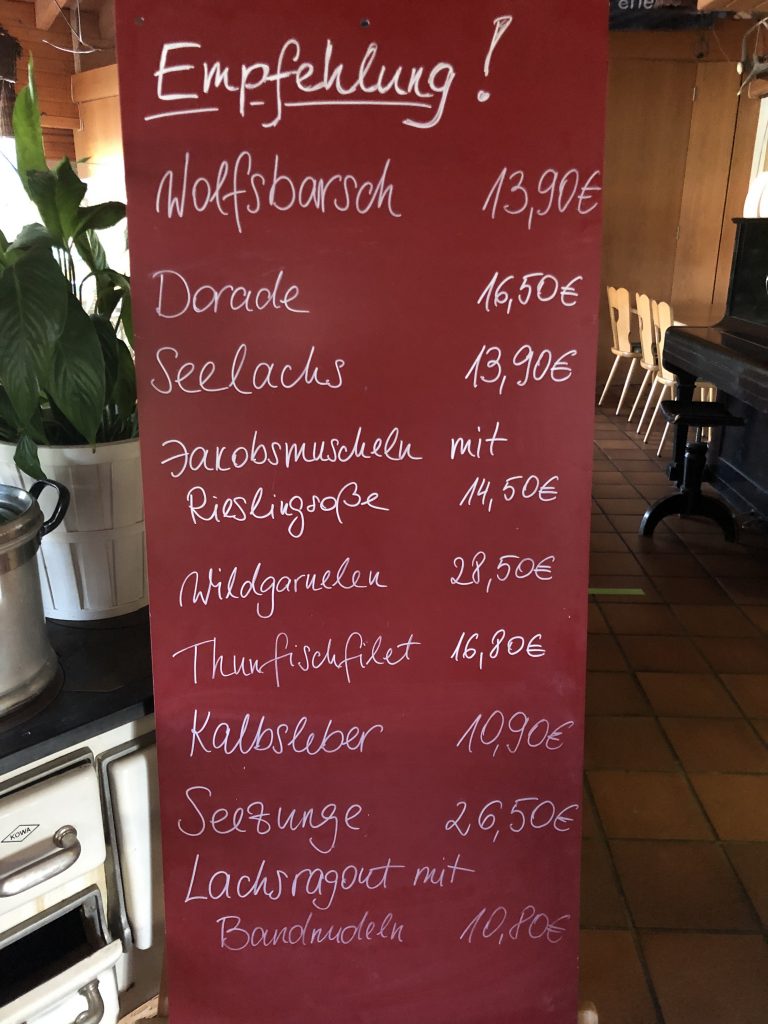 Empfehlung!
Wolfsbarsch 13,90€
Dorade 16,50€
Seelachs 13,90€
Jakobsmuscheln mit
Rieslingsoße 14,50€
Wildgarnelen 28,50€
Thunfischfilet 16,80€
Kalbsleber 10,90€
Seezunge 26,50€
Lachsragout mit
Bandnudeln 10,80€
KOWA